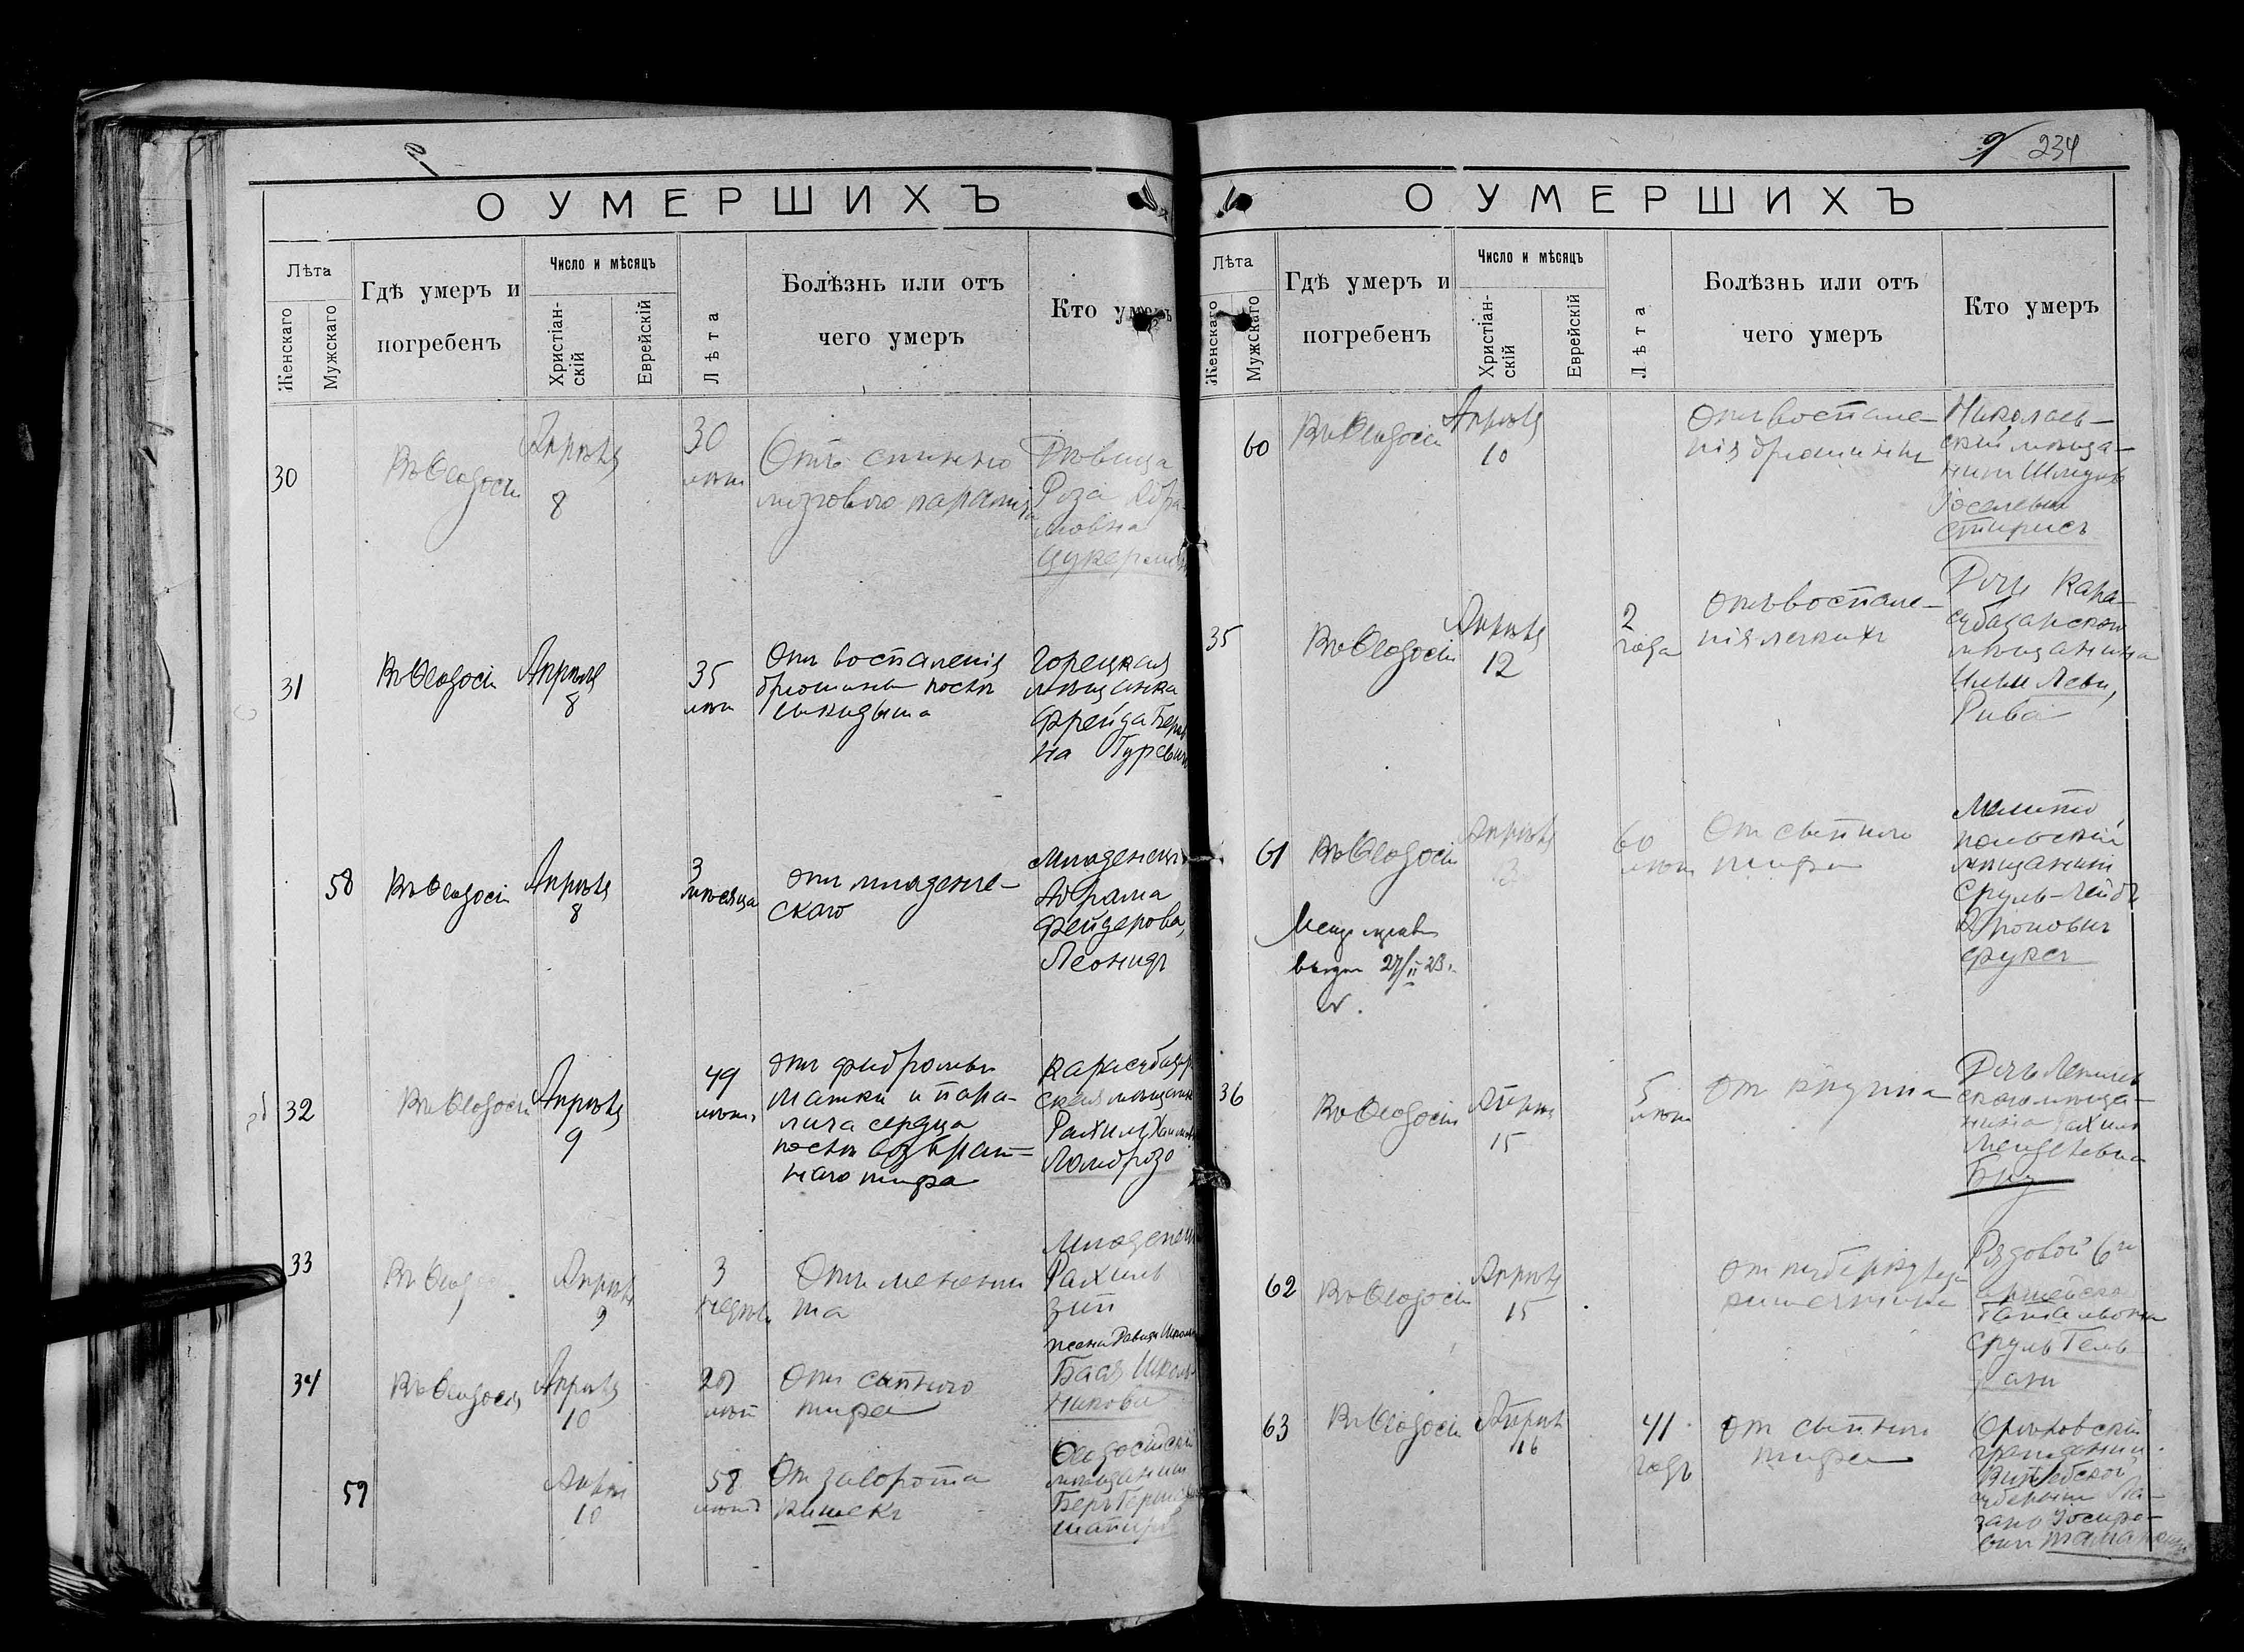 О УМЕРШИХЪ
Лѣта
Женскаго
Мужскаго
Гдѣ умеръ и
погребенъ
Число и мѣсяцъ
Христіан-
скій
Еврейскій
Лѣта
Болѣзнь или отъ
чего умеръ
Кто умеръ
30
Въ Ѳеодосіи
Апрѣля
8
30
лѣтъ
Отъ спинно
мозгового паралича
Дѣвица
Роза Абра-
мовна
Цукерман
31
Въ Ѳеодосіи
Апрѣля
8
35
лѣтъ
Отъ воспаленія
брюшины послѣ
выкидыша
Горецкая
мѣщанка
Фрейда Беров
на Гуревич
58
Въ Ѳеодосіи
Апрѣля
8
3
мѣсяца
отъ младенче-
скаго
Младенецъ
Абрама
Фейдерова,
Леонидъ
32
Въ Ѳеодосіи
Апрѣля
9
49
лѣтъ
отъ фибромы
матки и пара-
лича сердца
послѣ возврат-
наго тифа
Карасубазар
ская мѣщанка
Рахиль Хаимов
Ломброзо
33
Въ
Апрѣля
9
3
недѣли
Отъ менинги
та
Младенец
Рахиль
34
Въ Ѳеодосіи
Апрѣля
10
лѣт
Отъ сыпного
тифа
жена Давида Школьн
Бася Школь-
никова
59
Апрѣл
10
58
лѣтъ
От заворота
кишекъ
Ѳеодосійскій
мѣщанинъ
Беръ Герш
Шапиро
234
О УМЕРШИХЪ
Лѣта
Женскаго
Мужскаго
Гдѣ умеръ и
погребенъ
Число и мѣсяцъ
Христіан-
скій
Еврейскій
Лѣта
Болѣзнь или отъ
чего умеръ
Кто умеръ
60
Въ Ѳеодосіи
Апрѣля
10
отъ воспале-
нія брюшины
Николаев-
скій мѣща-
нинъ Шмуль
Іоселевич
35
Въ Ѳеодосіи
Апрѣля
12
2
года
отъ воспале-
нія легкихъ
Дочь Кара-
субазарскаго
мѣщанина
Ильи Леви,
Рива
61
Въ Ѳеодосіи
Апрѣля
13
60
лѣтъ
От сыпного
тифа
Мелито
польскій
мѣщанинъ
Сруль-Лейбъ
Ароновичъ
Фуксъ
выдан 27/II 23 г.
36
Въ Ѳеодосіи
Апрѣля
15
5
лѣтъ
От крупа
Дочь
скаго мѣща-
нина Рахиль
Менделевна
62
Въ Ѳеодосіи
Апрѣля
15
от туберкулеза
Рядовой 6го
армейскаго
Сруль Гель-
ман
63
Въ Ѳеодосіи
Апрѣля
16
41
годъ
От сыпного
тифа
гражданин
Витебской
губерніи Ла-
зарь Іосифо-
вич